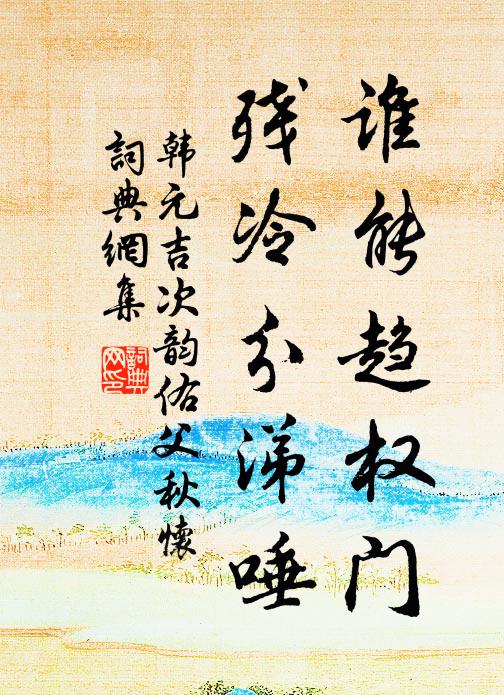 谁能趋权门
残冷分涕唾
韩元吉次韵佑父秋懷
詞典網集
詞典网印